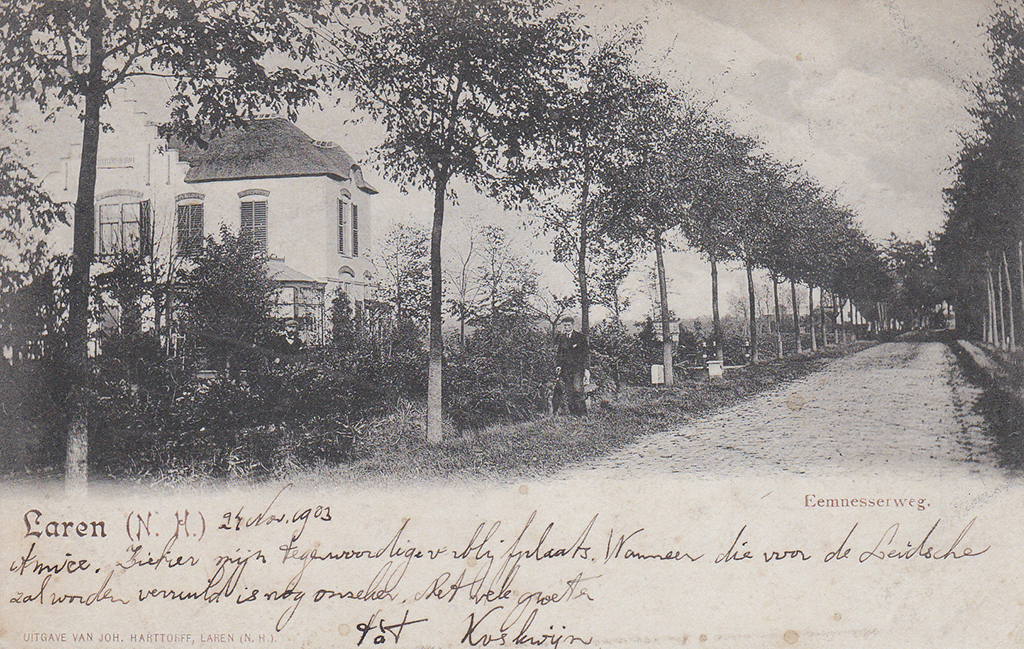 Eemnesserweg.
Laren (N. H.) 24 Nov. 1903
Amice. Ziehier mijn tegenwoordige verblijfplaats. Wanneer die voor de Leidsche
zal worden verruild is nog onzeker. Met vele groeten
tàt Koskwijn
UITGAVE VAN JOH. HARTTORFF, LAREN (N. H.).